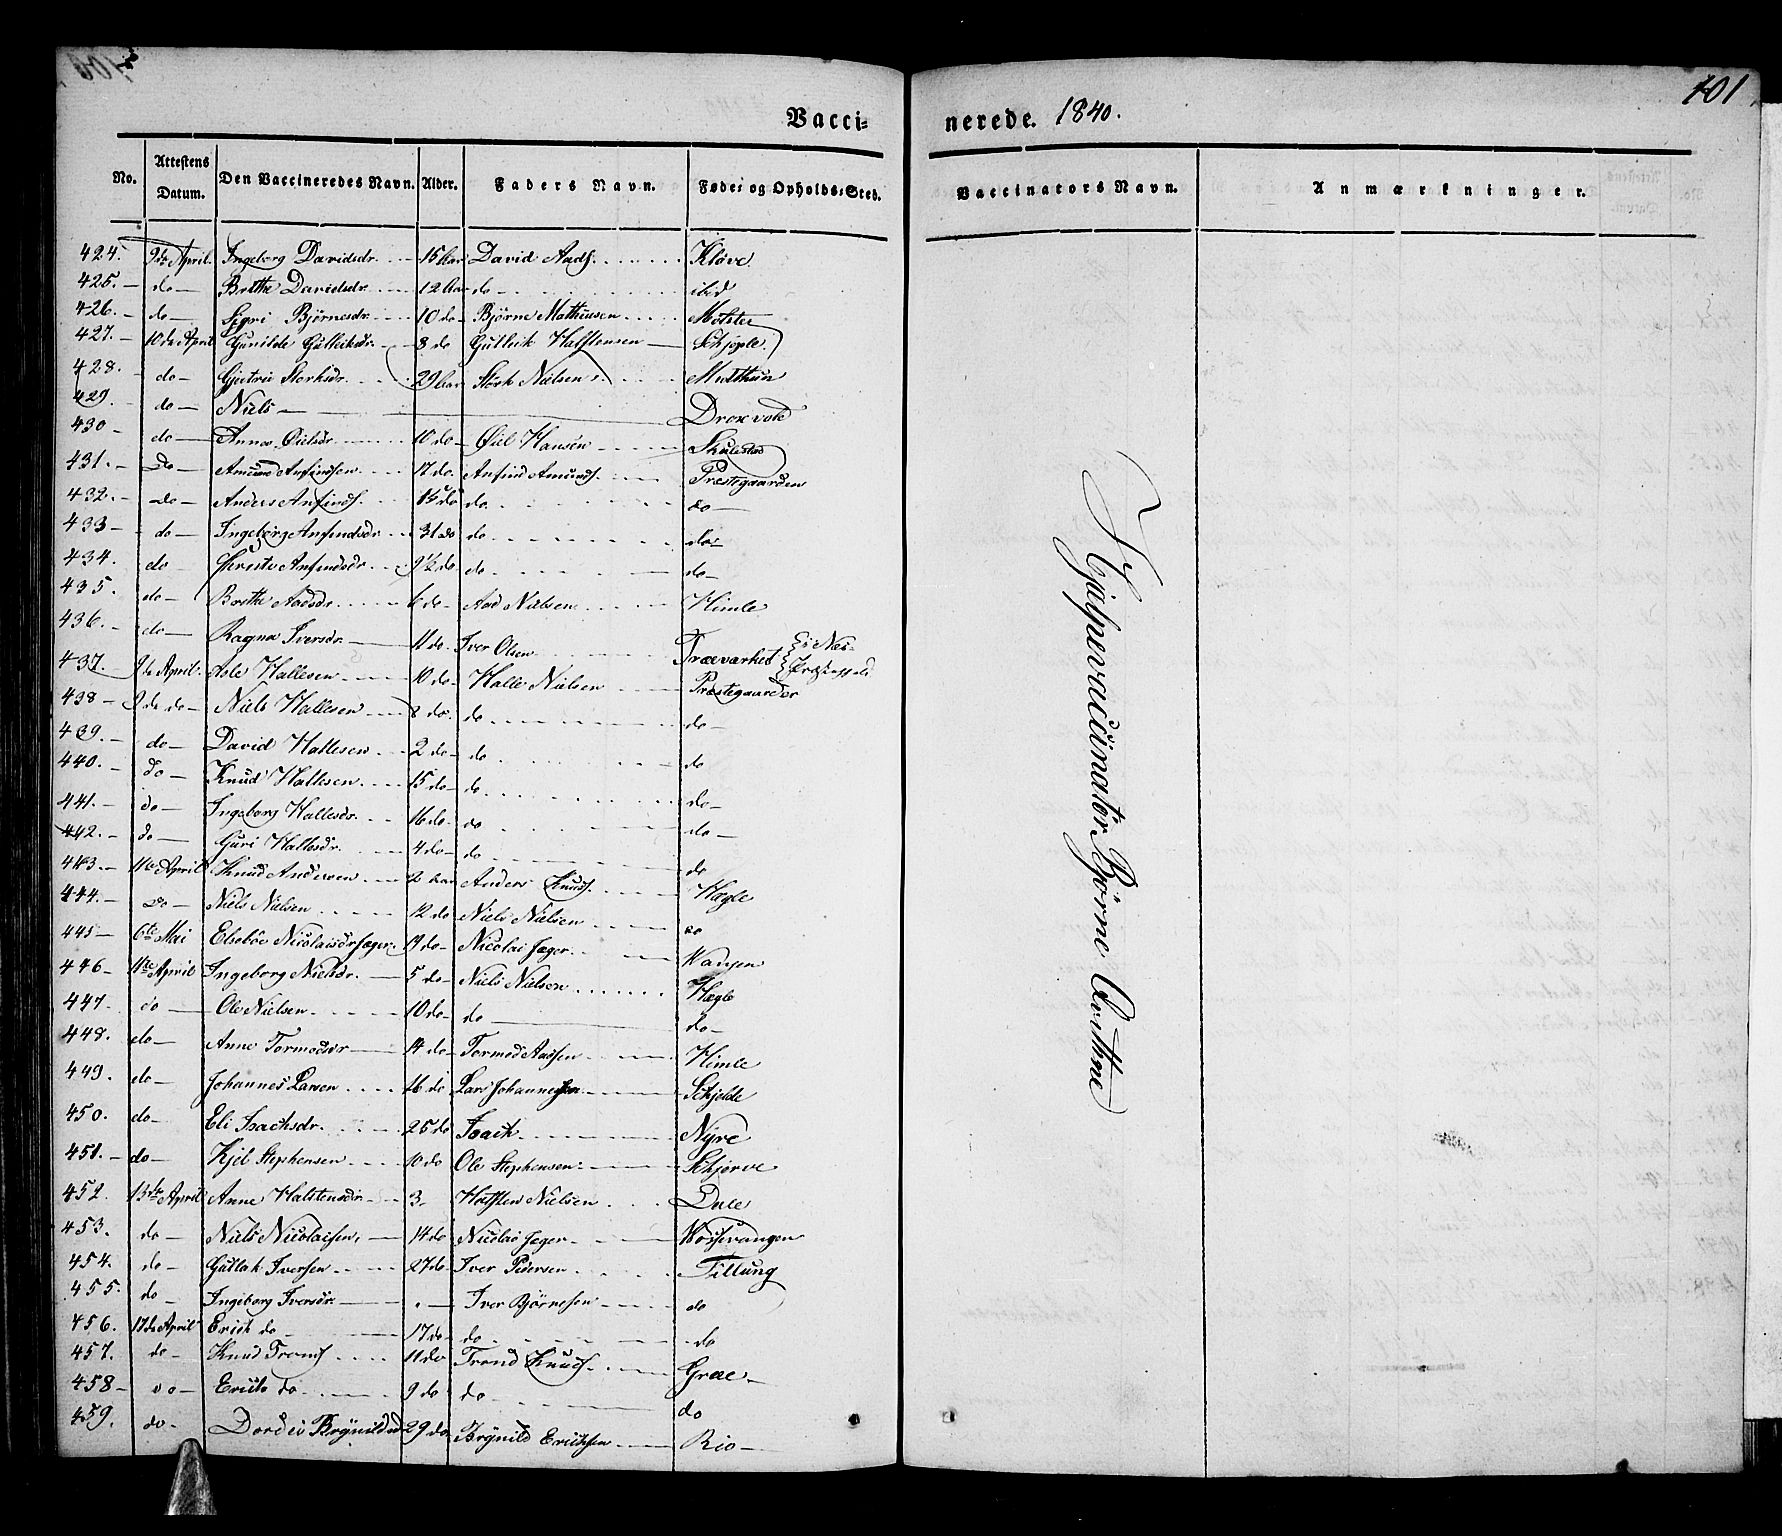 101
Vacci-nerede. 1840.
No. Attestens Datum. Den Vaccineredes Navn. Alder. Faders Navn. Fødei og Opholds-Sted. Vaccinators Navn. Anmærkninger.
424. 9de April. Ingeborg Davidsdr. 15 Aar David Aads. Kløve
425. do Brithe Davidsdr. 12 Aar do ibid
426. do Sigri Björnesdr. 10 do Björne Mathiesen Molster
427. 10de April Gunilde Gulleiksdr. 8 do Gulleik Halstensen
428. do Gjertrü Storksdr. 29 Aar Stork Nielsen
429. do Niels
430 do Anna 10 do Hansen Skulestad
431. Do Amund Anfindsen 17 do. Anfind Amunds. Præstegaarden
432. do Anders Anfinds. do do. do
433 do Ingeborg Anfindsdr. 31 do do do
434. do Anfindsdr. 9 1/2 do. do do
435. do Brithe Aadsdr. 6 do Aad Nielsen Himle
436. do Ragna Iversdr. 11 do. Iver Olsen
437. 9de April. Asle Hallesen 10 do Halle Nielsen
438 9de do Niels Hallesen 8 do. do do
439. do David Hallesen 2 do do do
440. do Knud Hallesen 15 do do do
441. do Ingeborg Hallesdr. 16 do. do do
442. do Guri Hallesdr. 4 do do do
443. 11te April Knud Andersen 2 Aar Anders Knuds. Hægle
444. do Niels Nielsen 12 do Niels Nielsen do
445 6te Mai Elsebøe Nicolaisdr Jæger. 17 do. Nicolai Jæger Wangen
446 11te April Ingeborg Nielsdr. 5 do Niels Nielsen Hægle
447. do Ole Nielsen 10 do do do
448. do Anne Tormodsdr 14 do Tormod Aadsen Himle
449. do Johannes Larsen 16 do Lars Johannesen Schjelde
450. do Eli Isachsdr. 25 do Isach Nÿre
451. do Kjel Stephensen 10 do Ole Stephensen Schjerve
452. 13de April Anne Halstensdr 3 Halsten Nielsen
453. do Niels Nicolaisen 14 do Nicolai Jæger Vossevangen
454. do Gullak Iversen 27 do. Iver Pedersen Tillung
455. do Ingeborg Iversdr. Iver Björnesen do
456. 17de April Erich do 17 do do do
457. do Knud Tronds. 11 do Trond Knuds. Græe
458 do do 9 do do do
459. do Dordei 29 do Brÿnild Erichsen Rio
Hjælpevaccinatör Björne